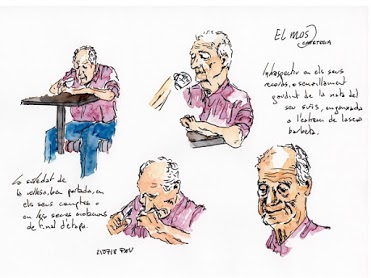 El Mos
Cafeteria
Introspectiu en els seus
records, o senzillament
gaudint de la nata del
seu suís, enganxada
a l'extrem de la seva
barbeta.
La soledat de
la vellesa, ben portada, en
els seus comptes o
en les seves
de final d'etapa.